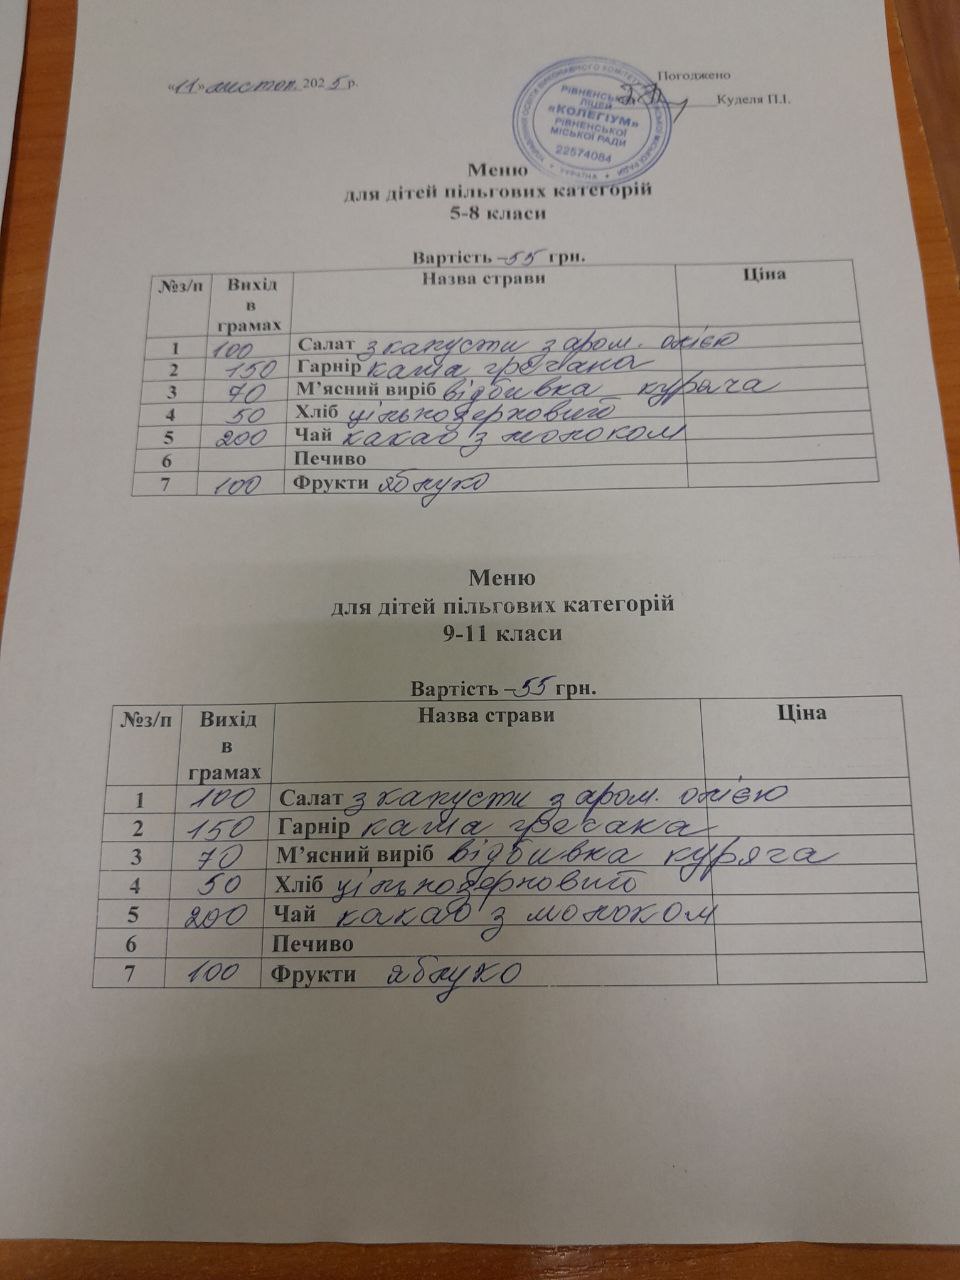 «11» листоп. 2025 р.
Погоджено
Куделя П.І.
УПРАВЛІННЯ ОСВІТИ ВИКОНАВЧОГО КОМІТЕТУ РІВНЕНСЬКОЇ МІСЬКОЇ РАДИ
УКРАЇНА
РІВНЕНСЬКИЙ
ЛІЦЕЙ
«КОЛЕГІУМ»
РІВНЕНСЬКОЇ
МІСЬКОЇ РАДИ
22574084
Меню
для дітей пільгових категорій
5-8 класи
Вартість – 55 грн.
№з/п Вихід в грамах Назва страви Ціна
1 100 Салат з капусти з аром. олією
2 150 Гарнір каша гречана
3 70 М’ясний виріб відбивка куряча
4 50 Хліб цільнозерновий
5 200 Чай какао з молоком
6 Печиво
7 100 Фрукти яблуко
Меню
для дітей пільгових категорій
9-11 класи
Вартість – 55 грн.
№з/п Вихід в грамах Назва страви Ціна
1 100 Салат з капусти з аром. олією
2 150 Гарнір каша гречана
3 70 М’ясний виріб відбивка куряча
4 50 Хліб цільнозерновий
5 200 Чай какао з молоком
6 Печиво
7 100 Фрукти яблуко